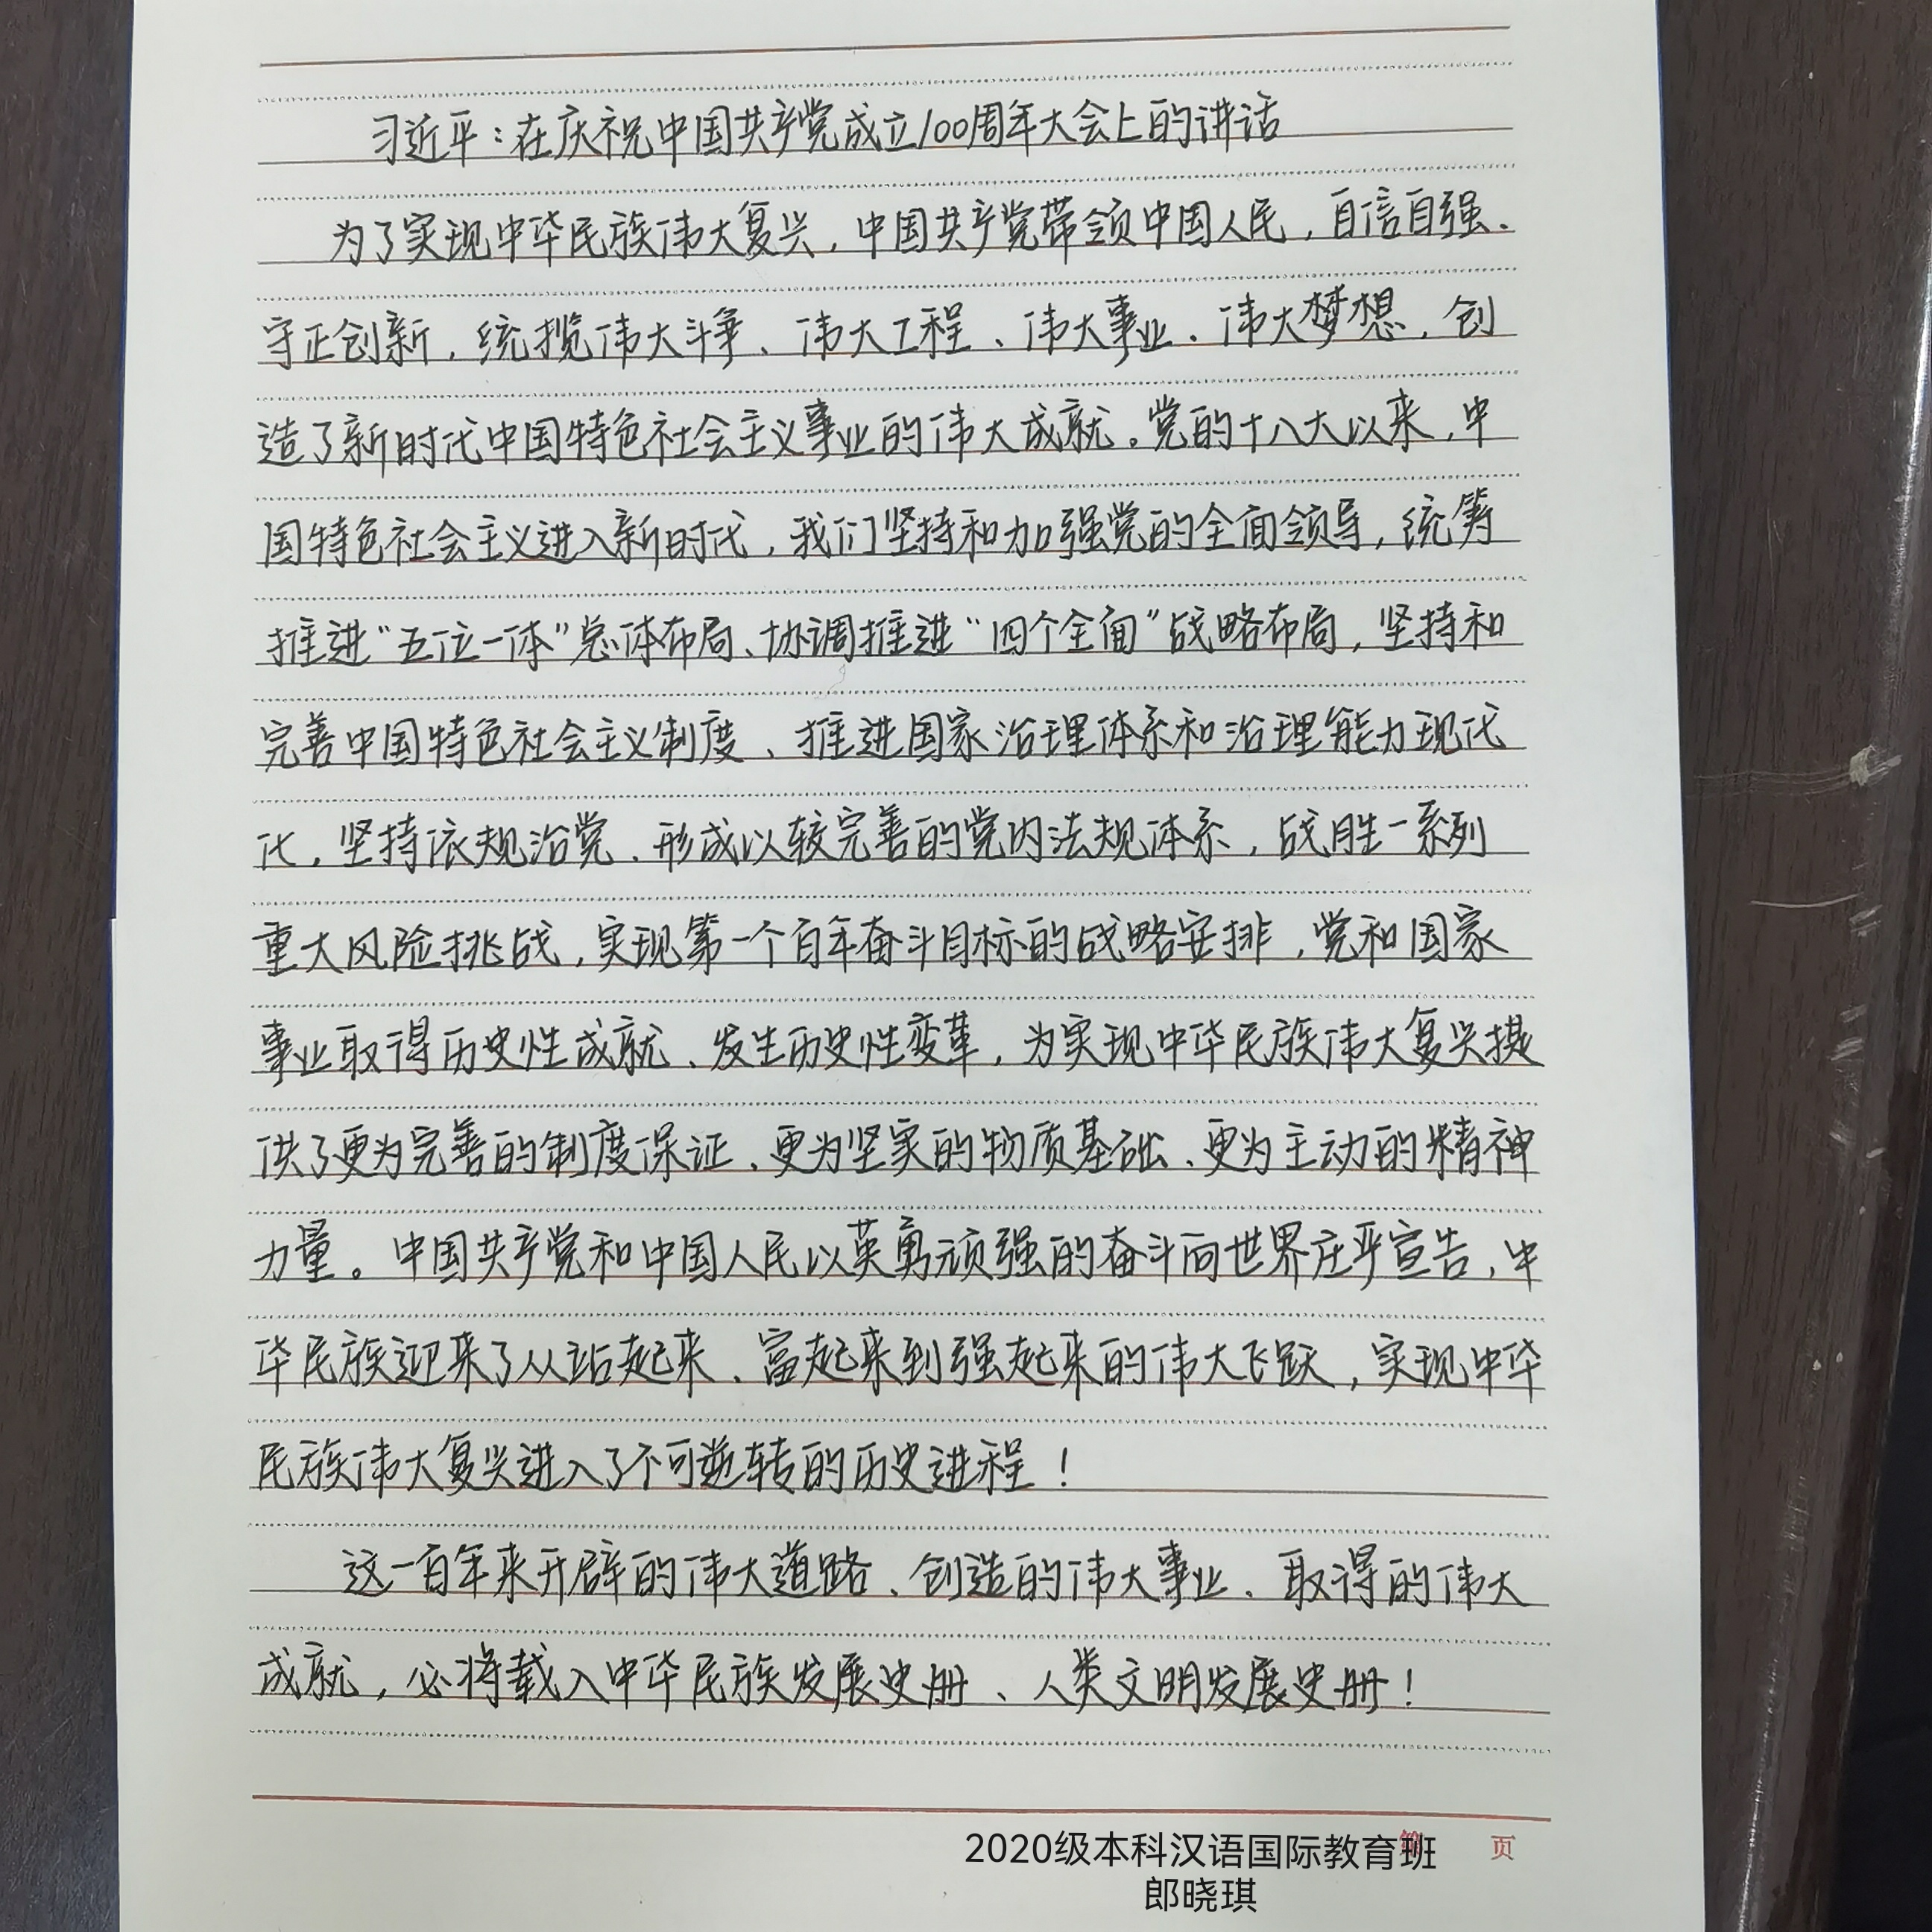 习近平：在庆祝中国共产党成立100周年大会上的讲话
为了实现中华民族伟大复兴，中国共产党带领中国人民，自信自强、
守正创新，统揽伟大斗争、伟大工程、伟大事业、伟大梦想，创
造了新时代中国特色社会主义事业的伟大成就。党的十八大以来，中
国特色社会主义进入新时代，我们坚持和加强党的全面领导，统筹
推进“五位一体”总体布局、协调推进“四个全面”战略布局，坚持和
完善中国特色社会主义制度、推进国家治理体系和治理能力现代
化，坚持依规治党、形成以较完善的党内法规体系，战胜一系列
重大风险挑战，实现第一个百年奋斗目标的战略安排，党和国家
事业取得历史性成就、发生历史性变革，为实现中华民族伟大复兴提
供了更为完善的制度保证、更为坚实的物质基础、更为主动的精神
力量。中国共产党和中国人民以英勇顽强的奋斗向世界庄严宣告，中
华民族迎来了从站起来、富起来到强起来的伟大飞跃，实现中华
民族伟大复兴进入了不可逆转的历史进程！
这一百年来开辟的伟大道路、创造的伟大事业、取得的伟大
成就，必将载入中华民族发展史册、人类文明发展史册！
2020级本科汉语国际教育班
第 页
郎晓琪